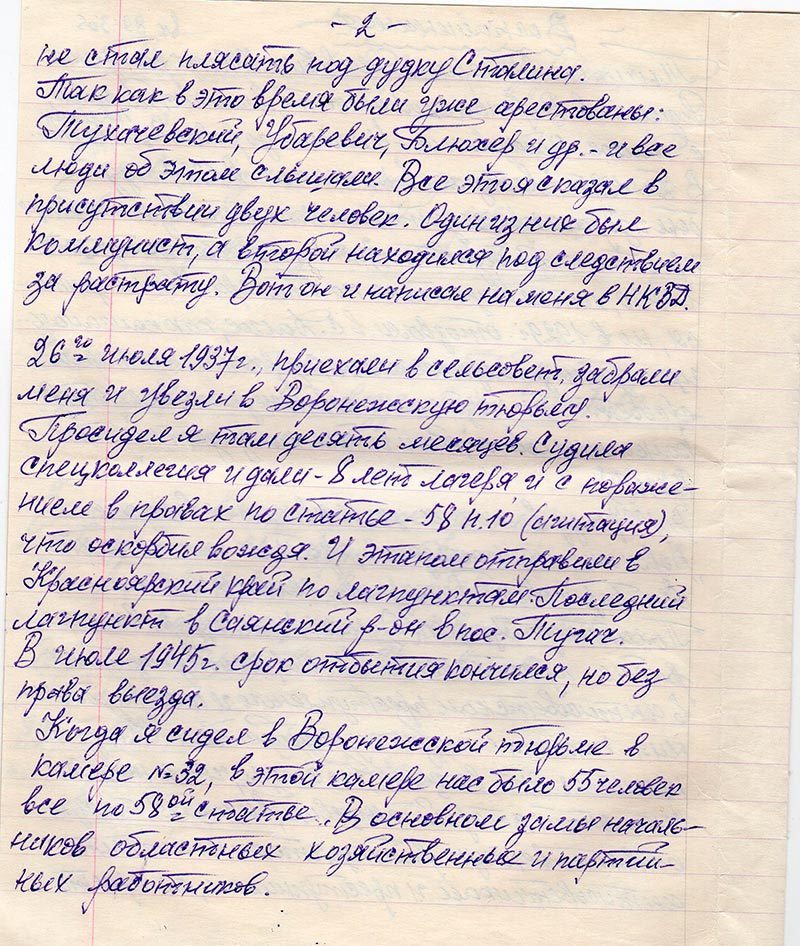 - 2 -
не стал плясать под дудку Сталина.
Так как в это время были уже арестованы:
Тухачевский, Убаревич, Блюхер и др. - и все
люди об этом слышали. Все это я сказал в
присутствии двух человек. Один из них был
коммунист, а второй находился под следствием
за растрату. Вот он и написал на меня в НКВД.
26го июля 1937г., приехали в сельсовет, забрали
меня и увезли в Воронежскую тюрьму.
Просидел я там десять месяцев. Судила
спецколлегия и дали - 8 лет лагеря, и с пораже-
нием в правах по статье - 58 п.10 (агитация),
что оскорбил вождя. И этапом отправили в
Красноярский край по лагпунктам. Последний
лагпункт в Саянский р-он в пос. Тугач.
В июле 1945г. срок отбытия кончился, но без
права выезда.
Когда я сидел в Воронежской тюрьме в
камере №32, в этой камере нас было 55 человек
все по 58ой статье. В основном замы началь-
ников областных хозяйственных и партий-
ных работников.